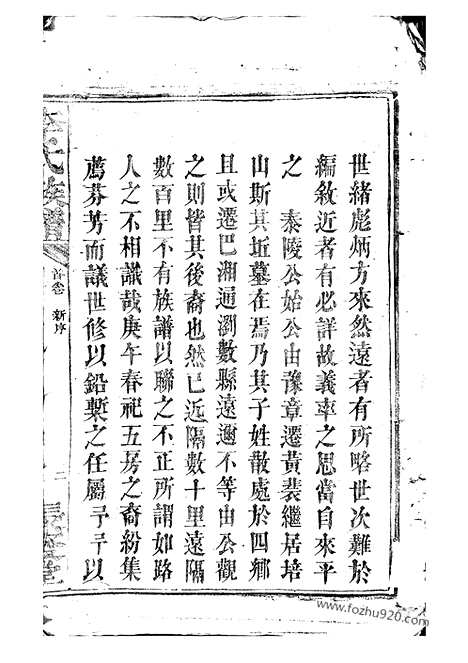 世緒彪炳方來然遠者有所略世次難於
編敘近者有必詳故義率之思當自來平
之　泰陵公始公由豫章遷黃裴繼居培
山斯其坵墓在焉乃其子姓散處於四鄉
且或遷巴湘迴瀏數縣遠邇不等由公觀
之則皆其後裔也然已近隔數十里遠隔
數百里不有族譜以聯之不正所謂如路
人之不相識哉庚午春祀五房之裔紛集
薦芬芳而議世修以鉛槧之任屬予予以
氏族譜
首卷　新序
堂
www.fozhu920.com